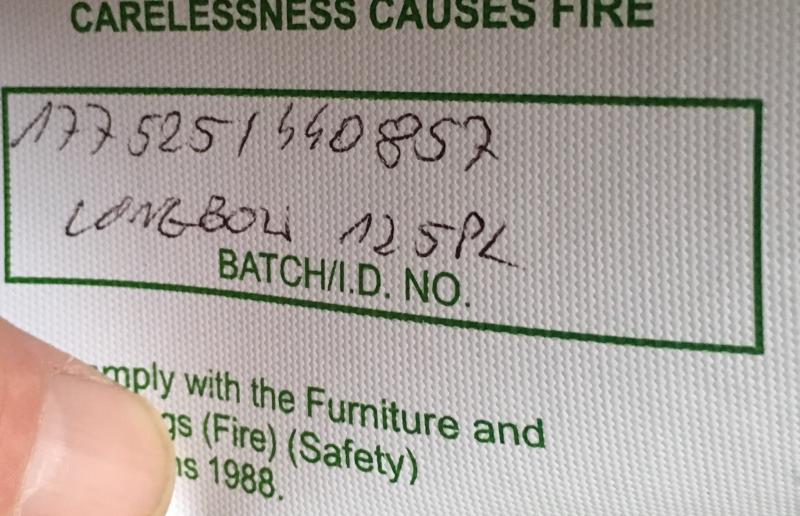 CARELESSNESS CAUSES FIRE
1775251440857
LONGBOW 125PL
BATCH/I.D. NO.
mply with the Furniture and
gs (Fire) (Safety)
ns 1988.